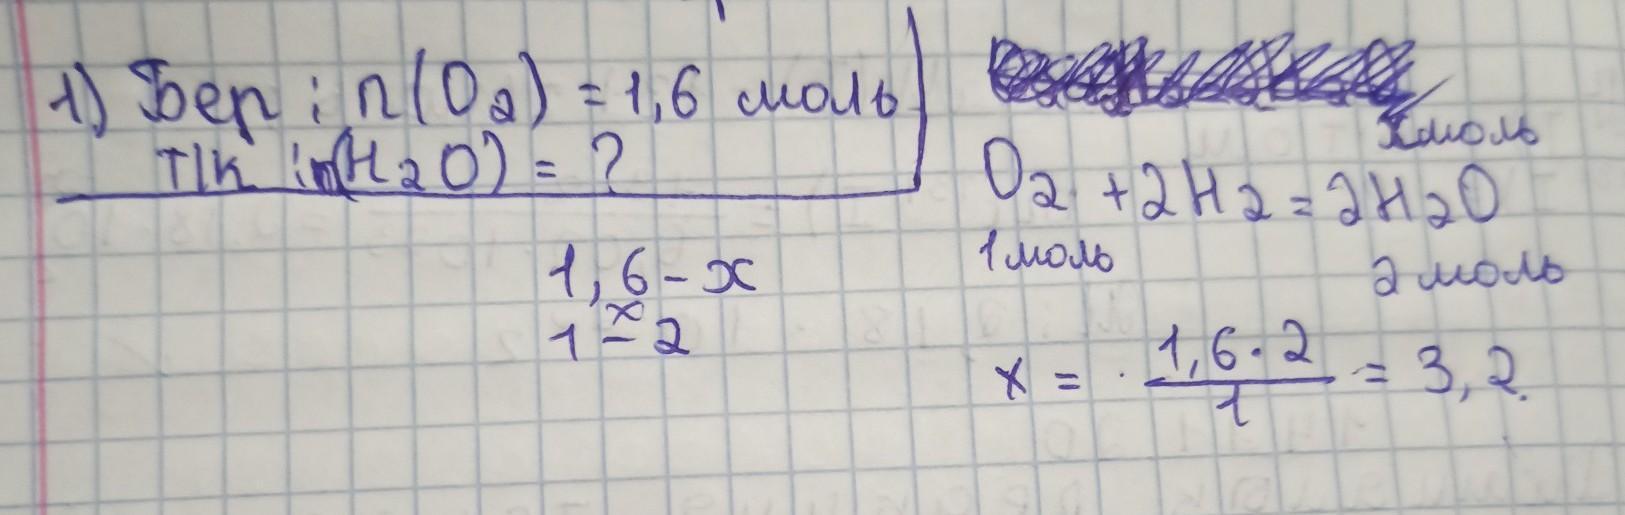 1) Бер : n(O2) = 1,6 моль
Т/к : n(H2O) = ?
xмоль
O2 + 2H2 = 2H2O
1моль 2моль
1,6 - x
x
1 - 2
x = 1,6 · 2 / 1 = 3,2.